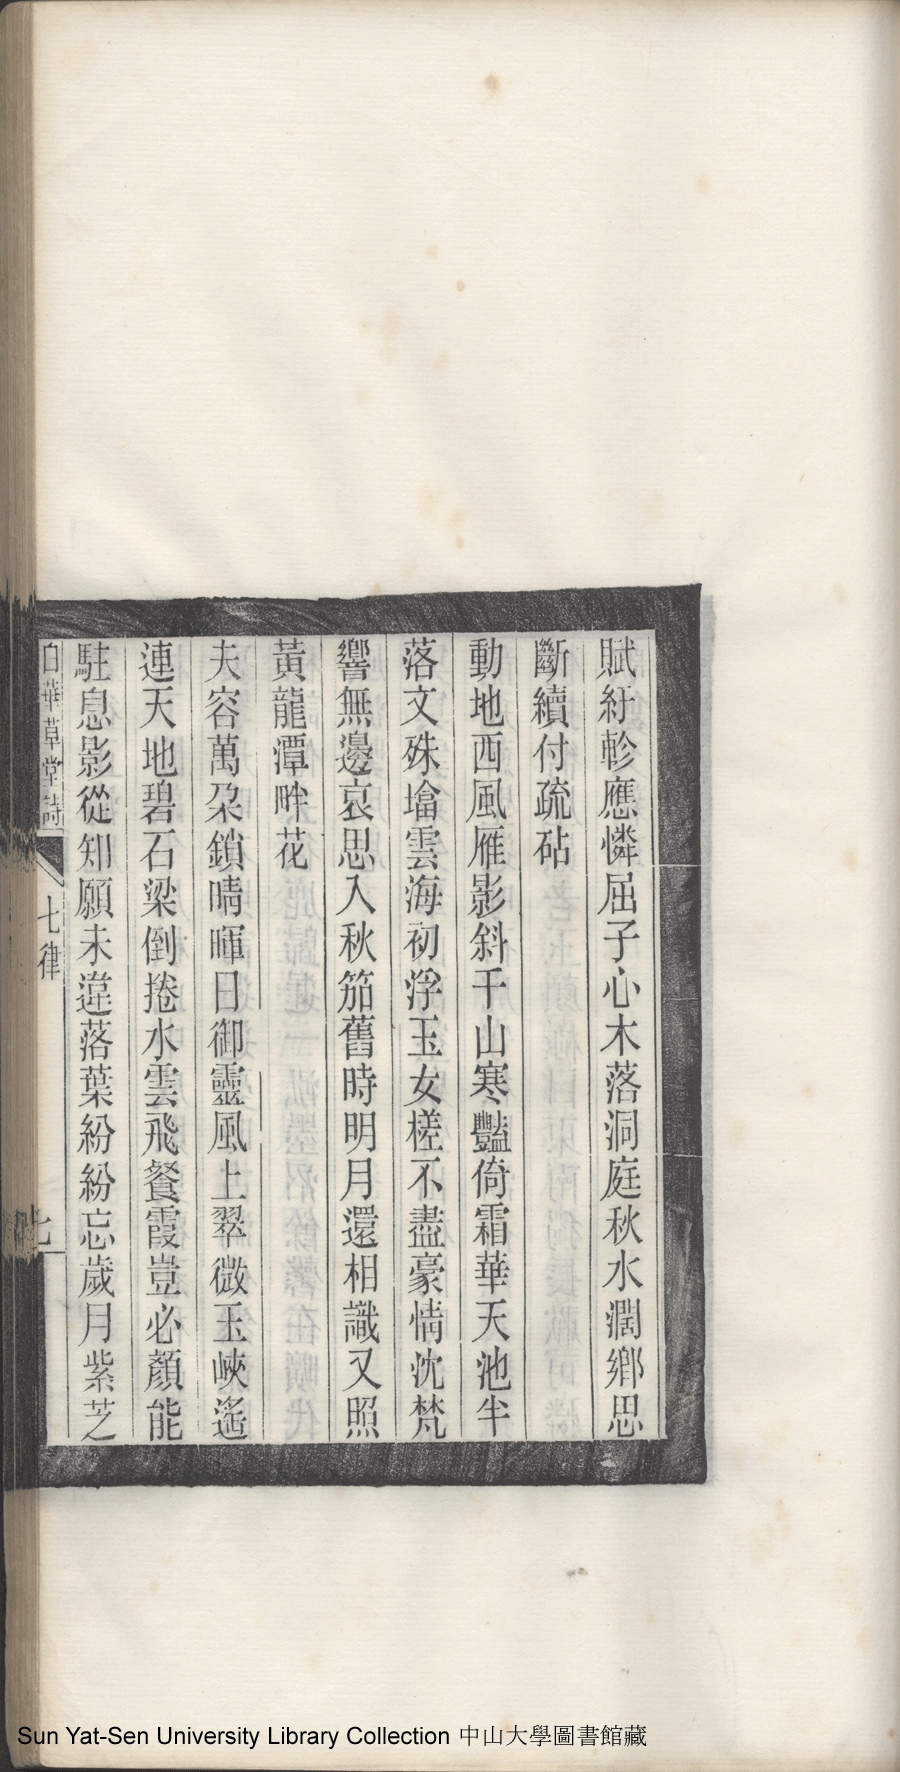 賦紆軫應憐屈子心木落洞庭秋水濶鄉思
斷續付疏砧
動地西風雁影斜千山寒豔倚霜華天池半
落文殊墖雲海初浮玉女槎不盡豪情沈梵
響無邊哀思入秋笳舊時明月還相識又照
黃龍潭畔花
夫容萬朶鎖晴暉日御靈風上翠微玉峽遙
連天地碧石梁倒捲水雲飛餐霞豈必顏能
駐息影從知願未違落葉紛紛忘歲月紫芝
白華草堂詩 七律 七
Sun Yat-Sen University Library Collection 中山大學圖書館藏